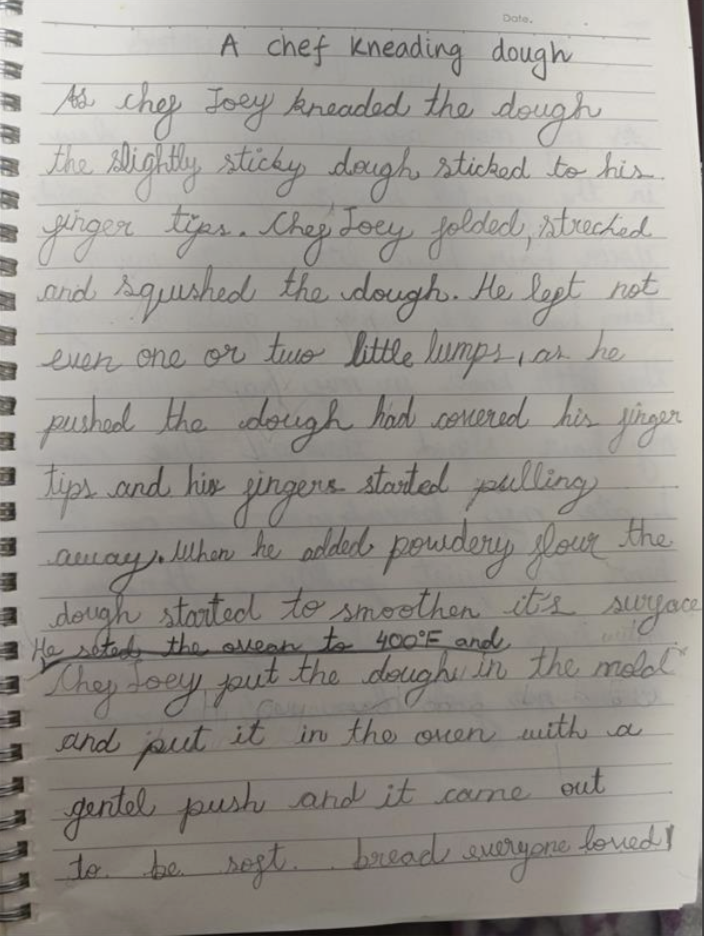 Date.
A chef kneading dough
As chef Joey kneaded the dough
the slightly sticky dough sticked to his
finger tips. Chef Joey folded, streched
and squshed the dough. He left not
even one or two little lumps, as he
pushed the dough had covered his finger
tips and his fingers started pulling
away. When he added powdery flour the
dough started to smoothen it's surface
He seted the ovean to 400°F and
Chef Joey put the dough in the mold
and put it in the oven with a
gentel push and it came out
to be soft. bread everyone loved!